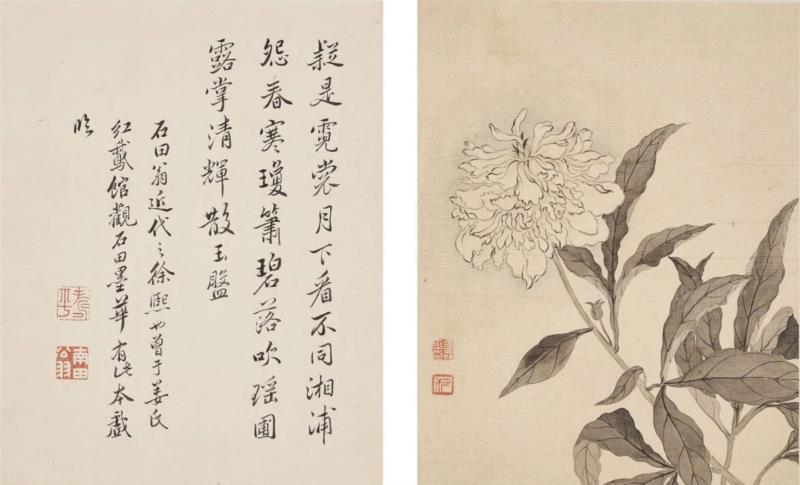 疑是霓裳月下看不同湘浦
怨春寒瓊簫碧落吹瑶圃
露掌清輝散玉盤
石田翁近代之徐熙也曾于姜氏
紅鵞館觀石田墨華有此本戲
臨
壽平
南田翁